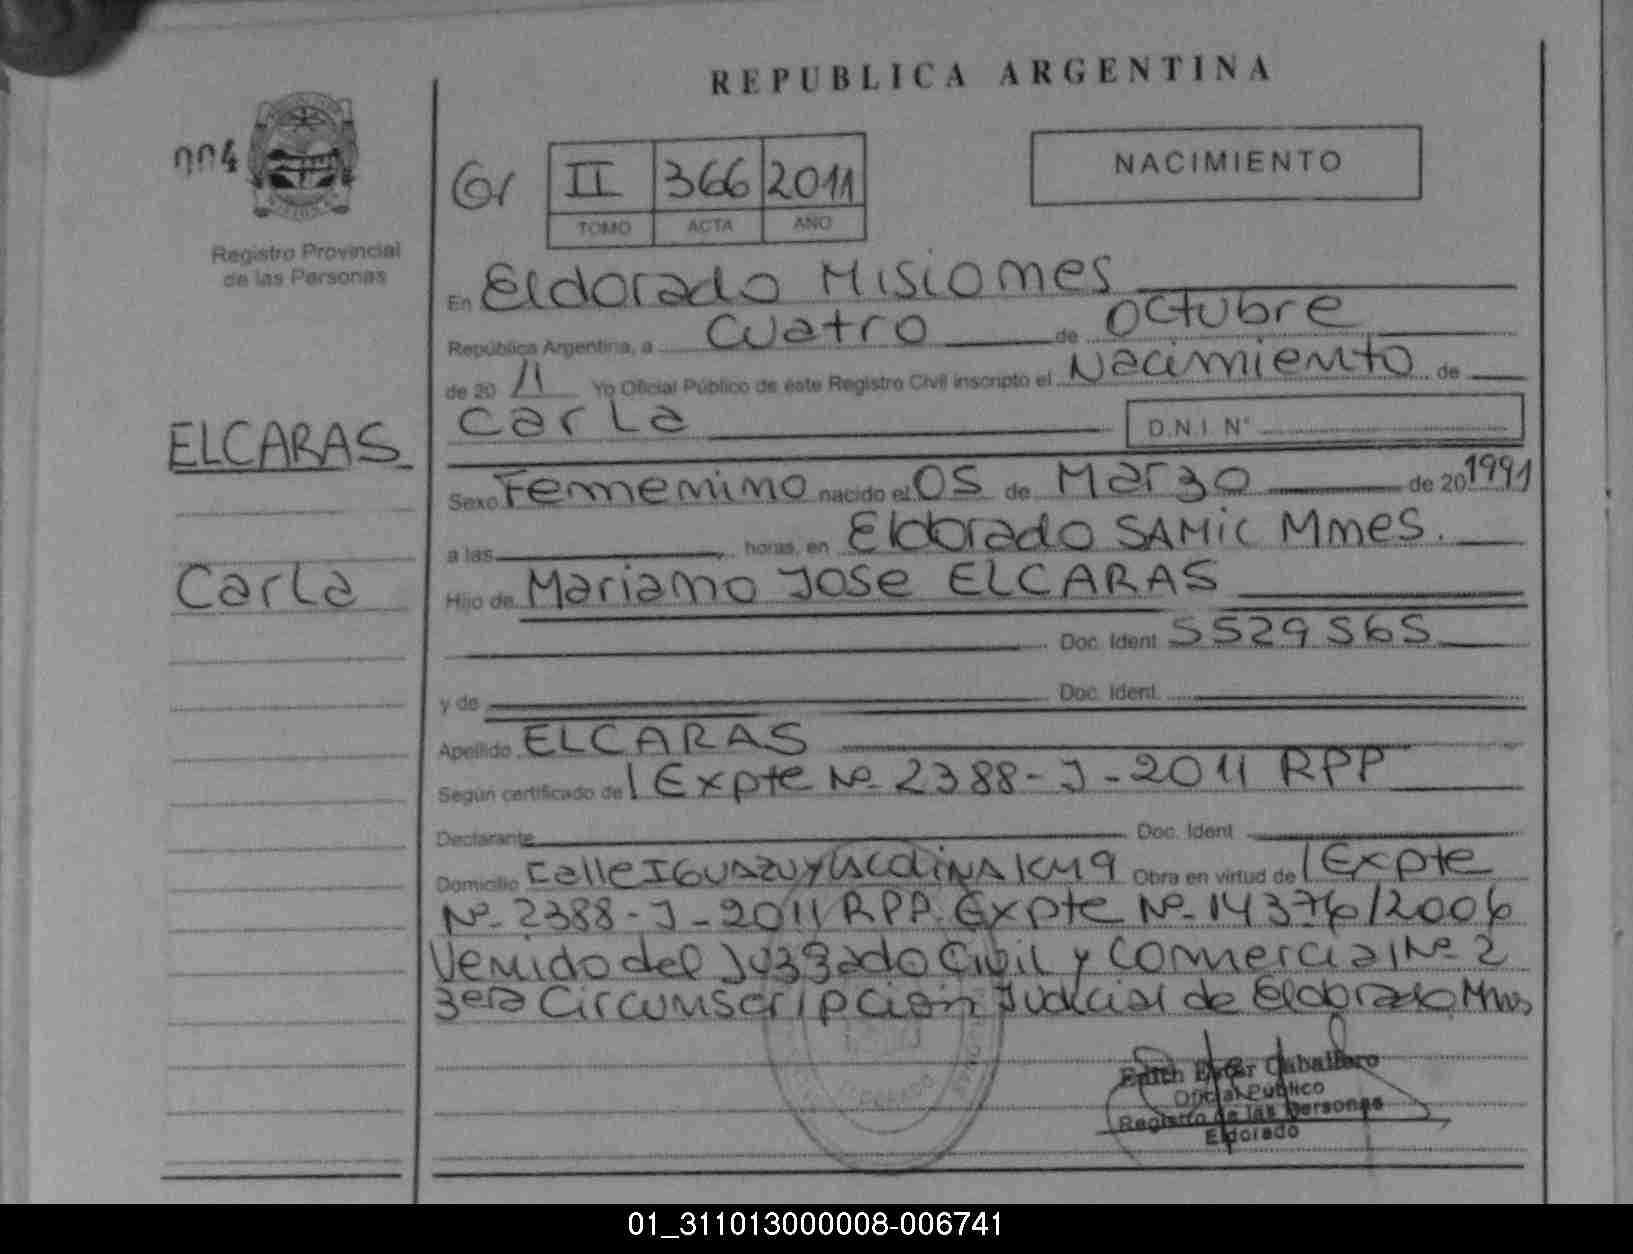 REPUBLICA ARGENTINA
004
Registro Provincial
de las Personas
II 366 2011
TOMO ACTA AÑO
NACIMIENTO
En Eldorado Misiones
República Argentina, a cuatro de octubre
de 20 11 Yo Oficial Público de éste Registro Civil inscripto el Nacimiento de
Carla D.N.I. N°
ELCARAS
Sexo Femenino nacido el 05 de Marzo de 20 1991
a las horas, en Eldorado SAMIC Mnes.
Carla
Hijo de Mariano Jose ELCARAS
Doc. Ident 5529565
y de Doc. Ident.
Apellido ELCARAS
Según certificado de l Expte Nº 2388-J-2011 RPP
Declarante Doc. Ident
Domicilio Calle IGUAZU y LA COLINA KM 9 Obra en virtud de l Expte
Nº 2388-J-2011 RPP. Expte Nº 14376/2006
Venido del Juzgado Civil y Comercial Nº 2
3era Circunscripcion Judicial de Eldorado Mnes
Edith Ester Caballero
Oficial Público
Registro de las Personas
Eldorado
01_311013000008-006741